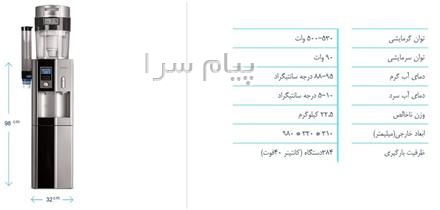 توان گرمایشی ۵۳۰-۵۰۰ وات
توان سرمایشی ۹۰ وات
دمای آب گرم ۹۵-۸۸ درجه سانتیگراد
دمای آب سرد ۱۰-۵ درجه سانتیگراد
وزن ناخالص ۲۲.۵ کیلوگرم
ابعاد خارجی(میلیمتر) ۳۱۰ * ۳۲۰ * ۹۸۰
ظرفیت بارگیری ۳۸۴دستگاه (کانتینر ۴۰فوت)
پیام سرا
98 cm
32 cm